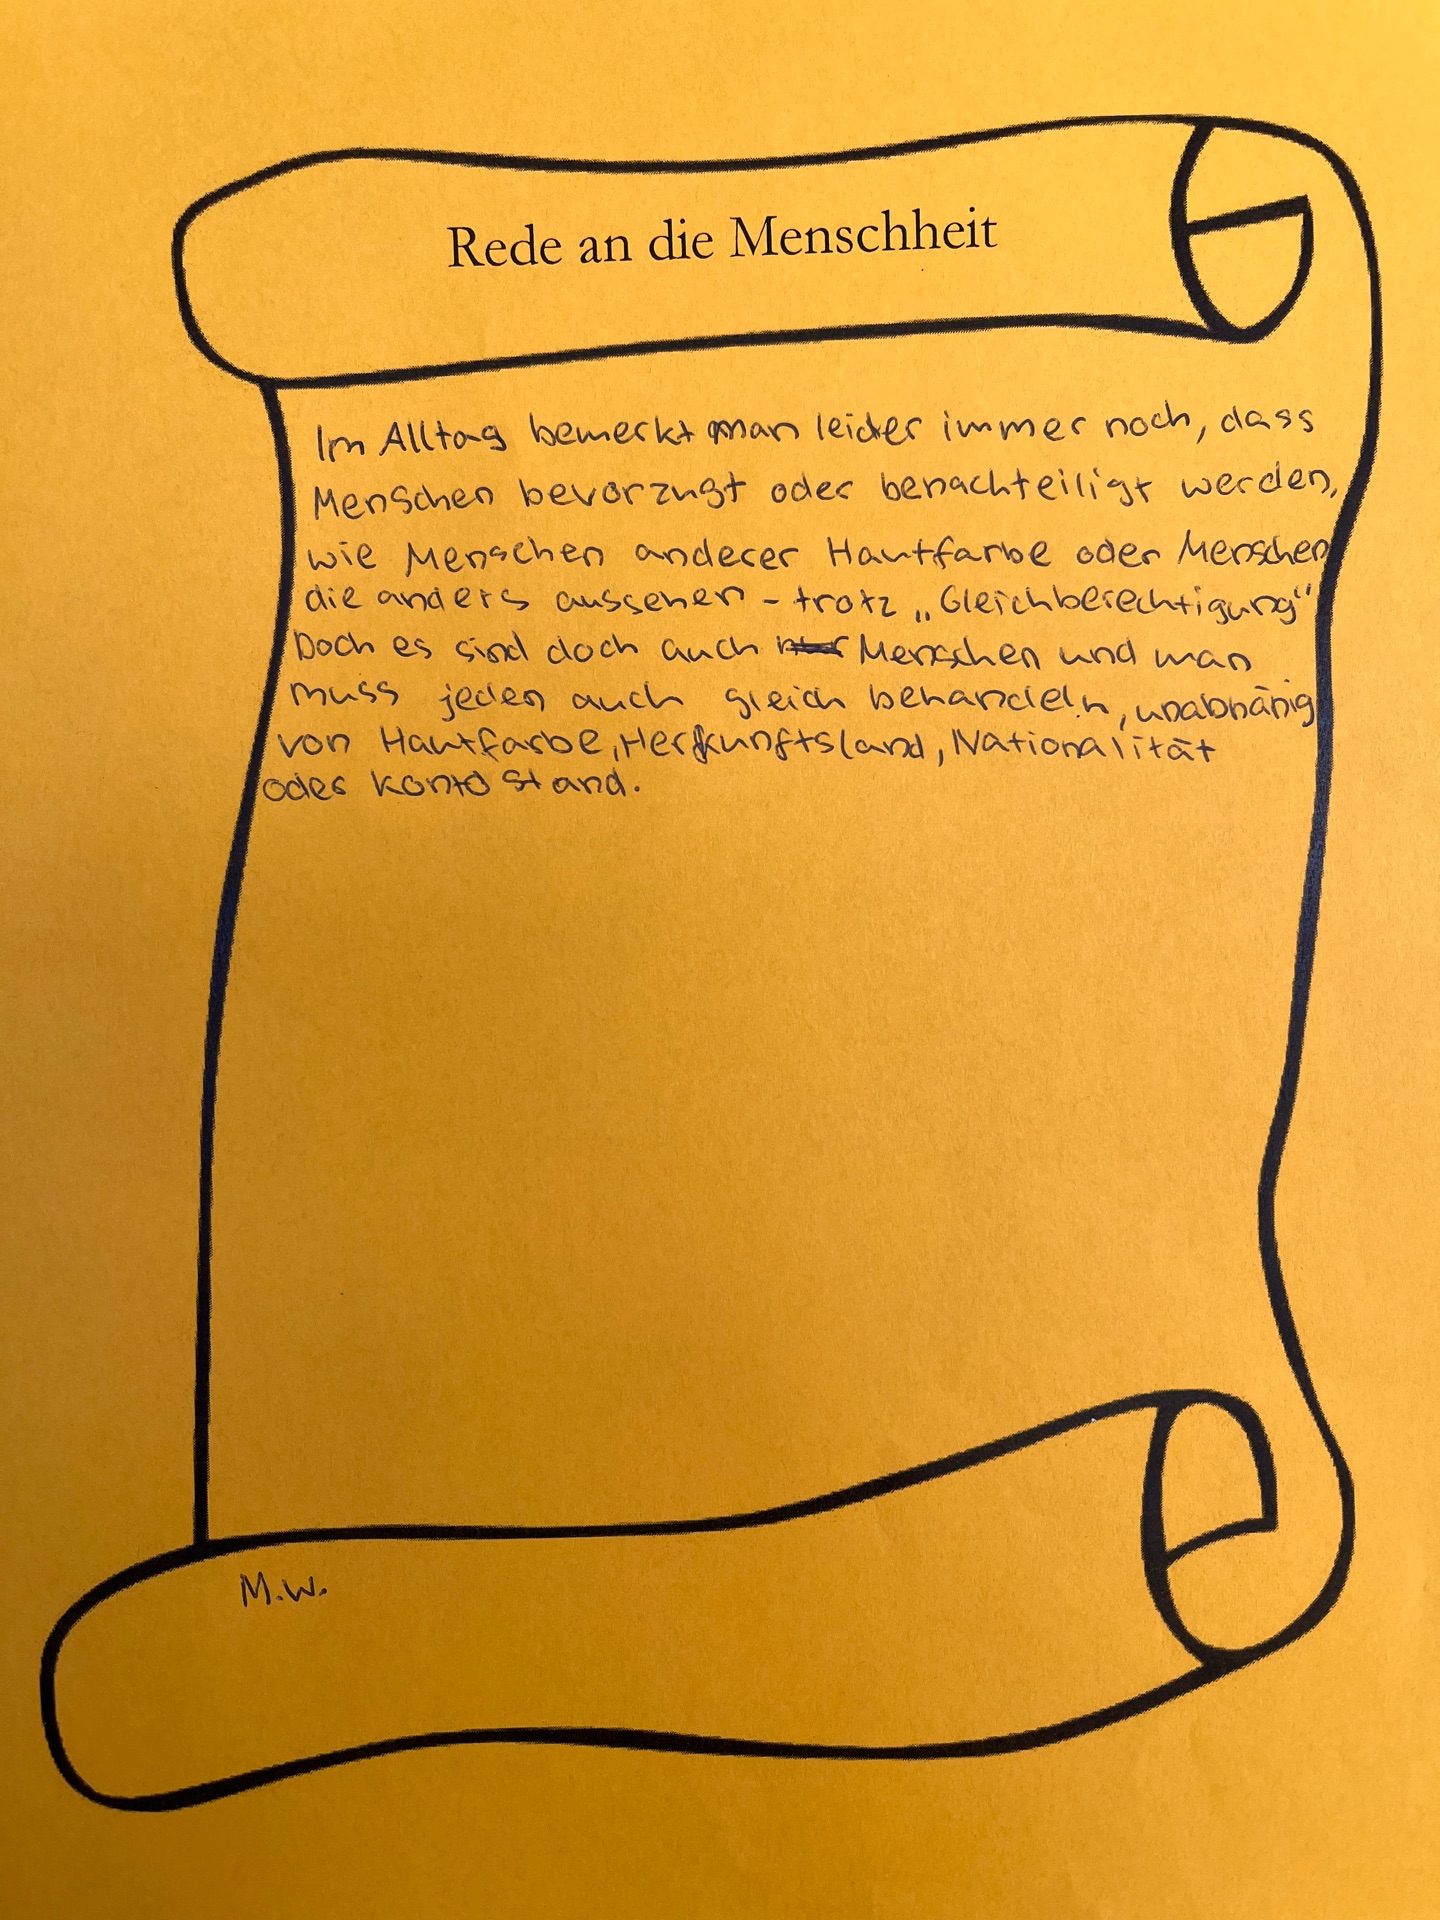 Rede an die Menschheit
Im Alltag bemerkt man leider immer noch, dass
Menschen bevorzugt oder benachteiligt werden,
wie Menschen anderer Hautfarbe oder Menschen
die anders aussehen - trotz „Gleichberechtigung“
Doch es sind doch auch Menschen und man
muss jeden auch gleich behandeln, unabhänig
von Hautfarbe, Herkunftsland, Nationalität
oder Kontostand.
M.W.